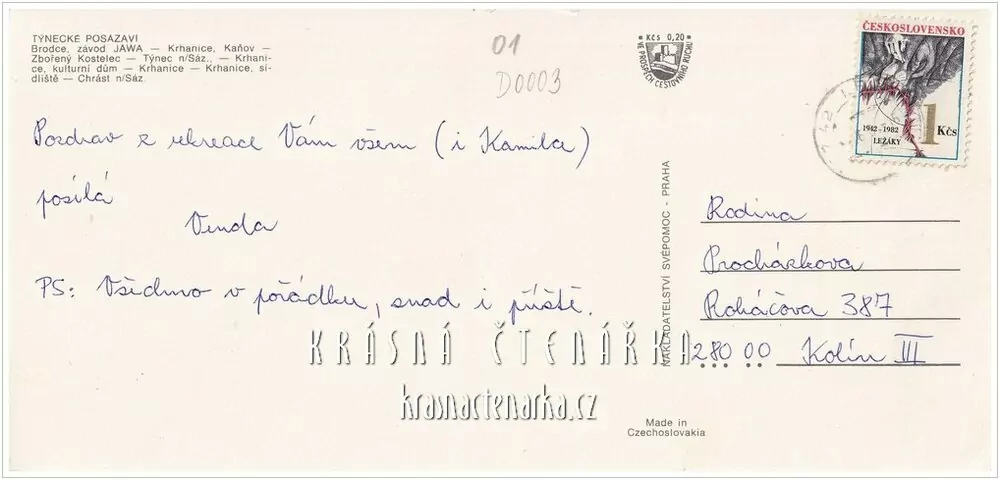 TÝNECKÉ POSÁZAVÍ
Brodce, závod JAWA — Krhanice, Kaňov —
Zbořený Kostelec — Týnec n/Sáz., — Krhani-
ce, kulturní dům — Krhanice — Krhanice, sí-
dliště — Chrást n/Sáz.
01
D0003
Kčs 0,20
VE PROSPĚCH CESTOVNÍHO RUCHU
ČESKOSLOVENSKO
1942-1982
LEŽÁKY
1 Kčs
Pozdrav z rekreace Vám všem (i Kamila)
posílá
Venda
PS: Všechno v pořádku, snad i příště.
NAKLADATELSTVÍ SVÉPOMOC - PRAHA
Rodina
Procházkova
Roháčova 387
280 00 Kolín III
KRÁSNÁ ČTENÁŘKA
krasnactenarka.cz
Made in
Czechoslovakia